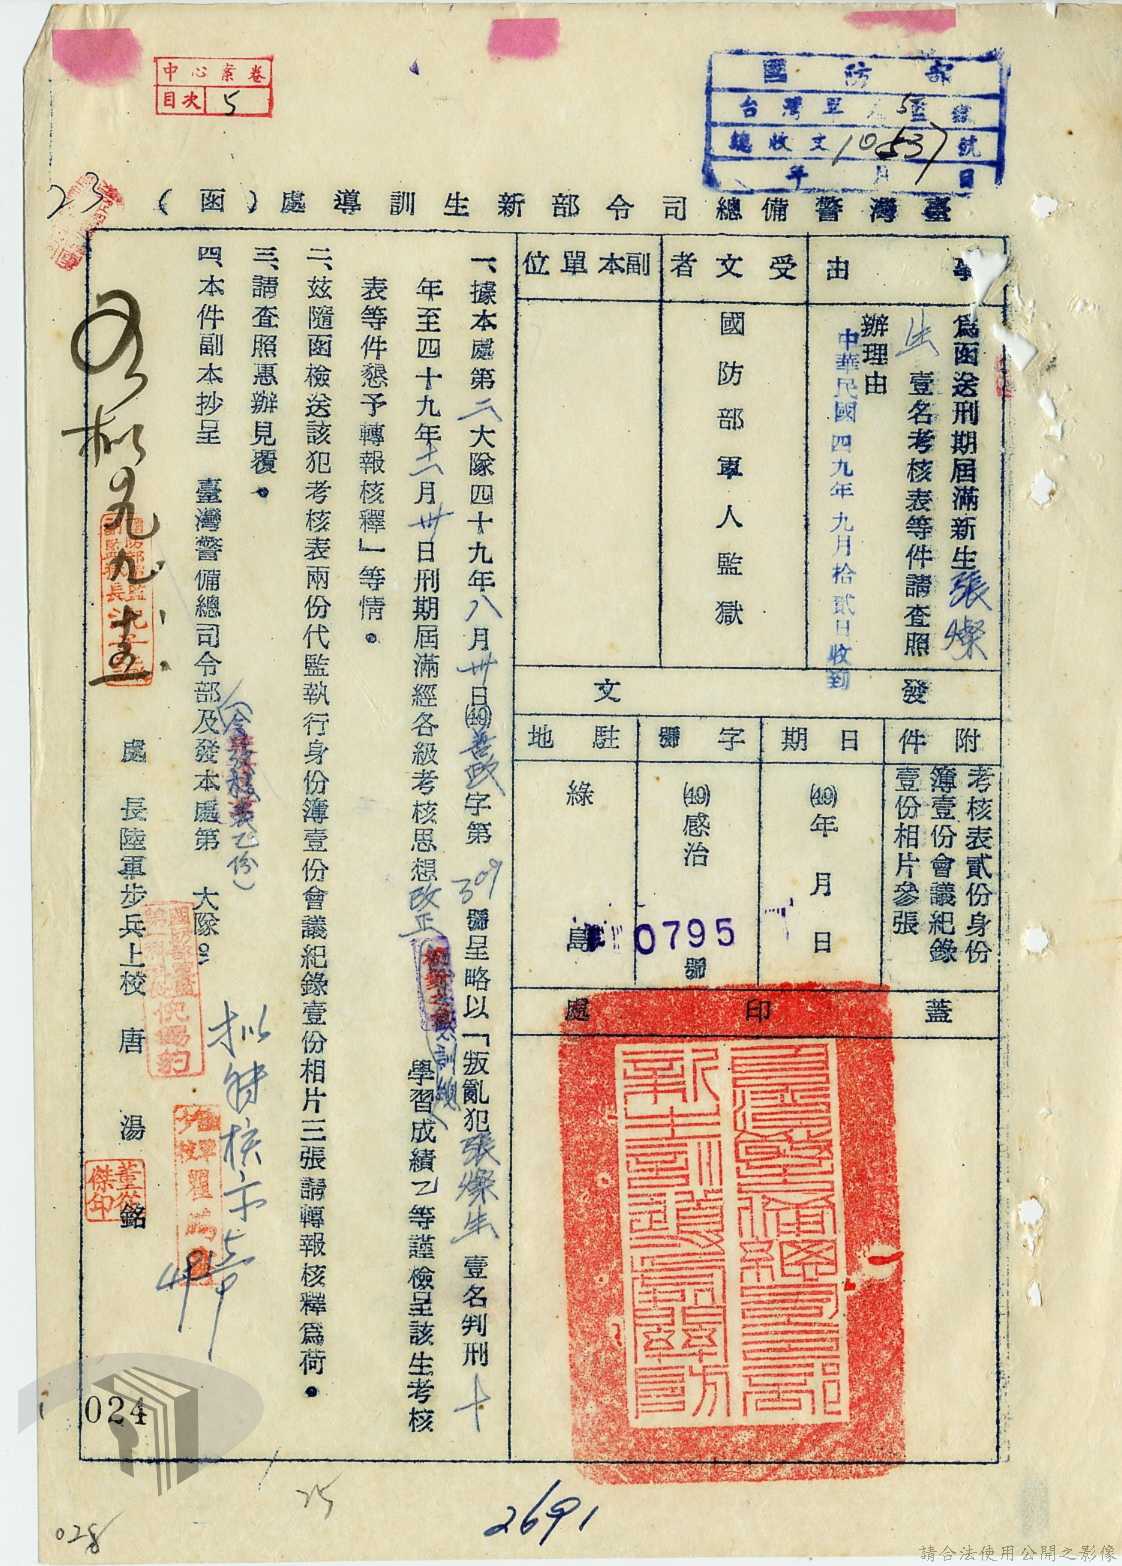 中心案卷
目次 5
國防部
總收文 10537 號
年 月 日
23
臺灣警備總司令部新生訓導處(函)
事由
為函送刑期屆滿新生張燦
生 壹名考核表等件請查照
辦理由
中華民國四九年九月拾貳日收到
受文者
國防部軍人監獄
副本單位
發文
附件
考核表貳份身份
簿壹份會議紀錄
壹份相片參張
日期
㊾年 月 日
字號
㊾感治
0795
號
駐地
綠島
蓋印處
臺灣警備總司令部
新生訓導處關防
一、據本處第二大隊四十九年八月卅日㊾善政字第309號呈略以「叛亂犯張燦生壹名判刑十
年至四十九年十一月卅日刑期屆滿經各級考核思想改正
學習成績乙等謹檢呈該生考核
表等件懇予轉報核釋」等情。
二、茲隨函檢送該犯考核表兩份代監執行身份簿壹份會議紀錄壹份相片三張請轉報核釋為荷。
三、請查照惠辦見覆。
四、本件副本抄呈 臺灣警備總司令部及發本處第 大隊。
處長陸軍步兵上校 唐湯銘
董從傑印
024
25
2691
028
請合法使用公開之影像